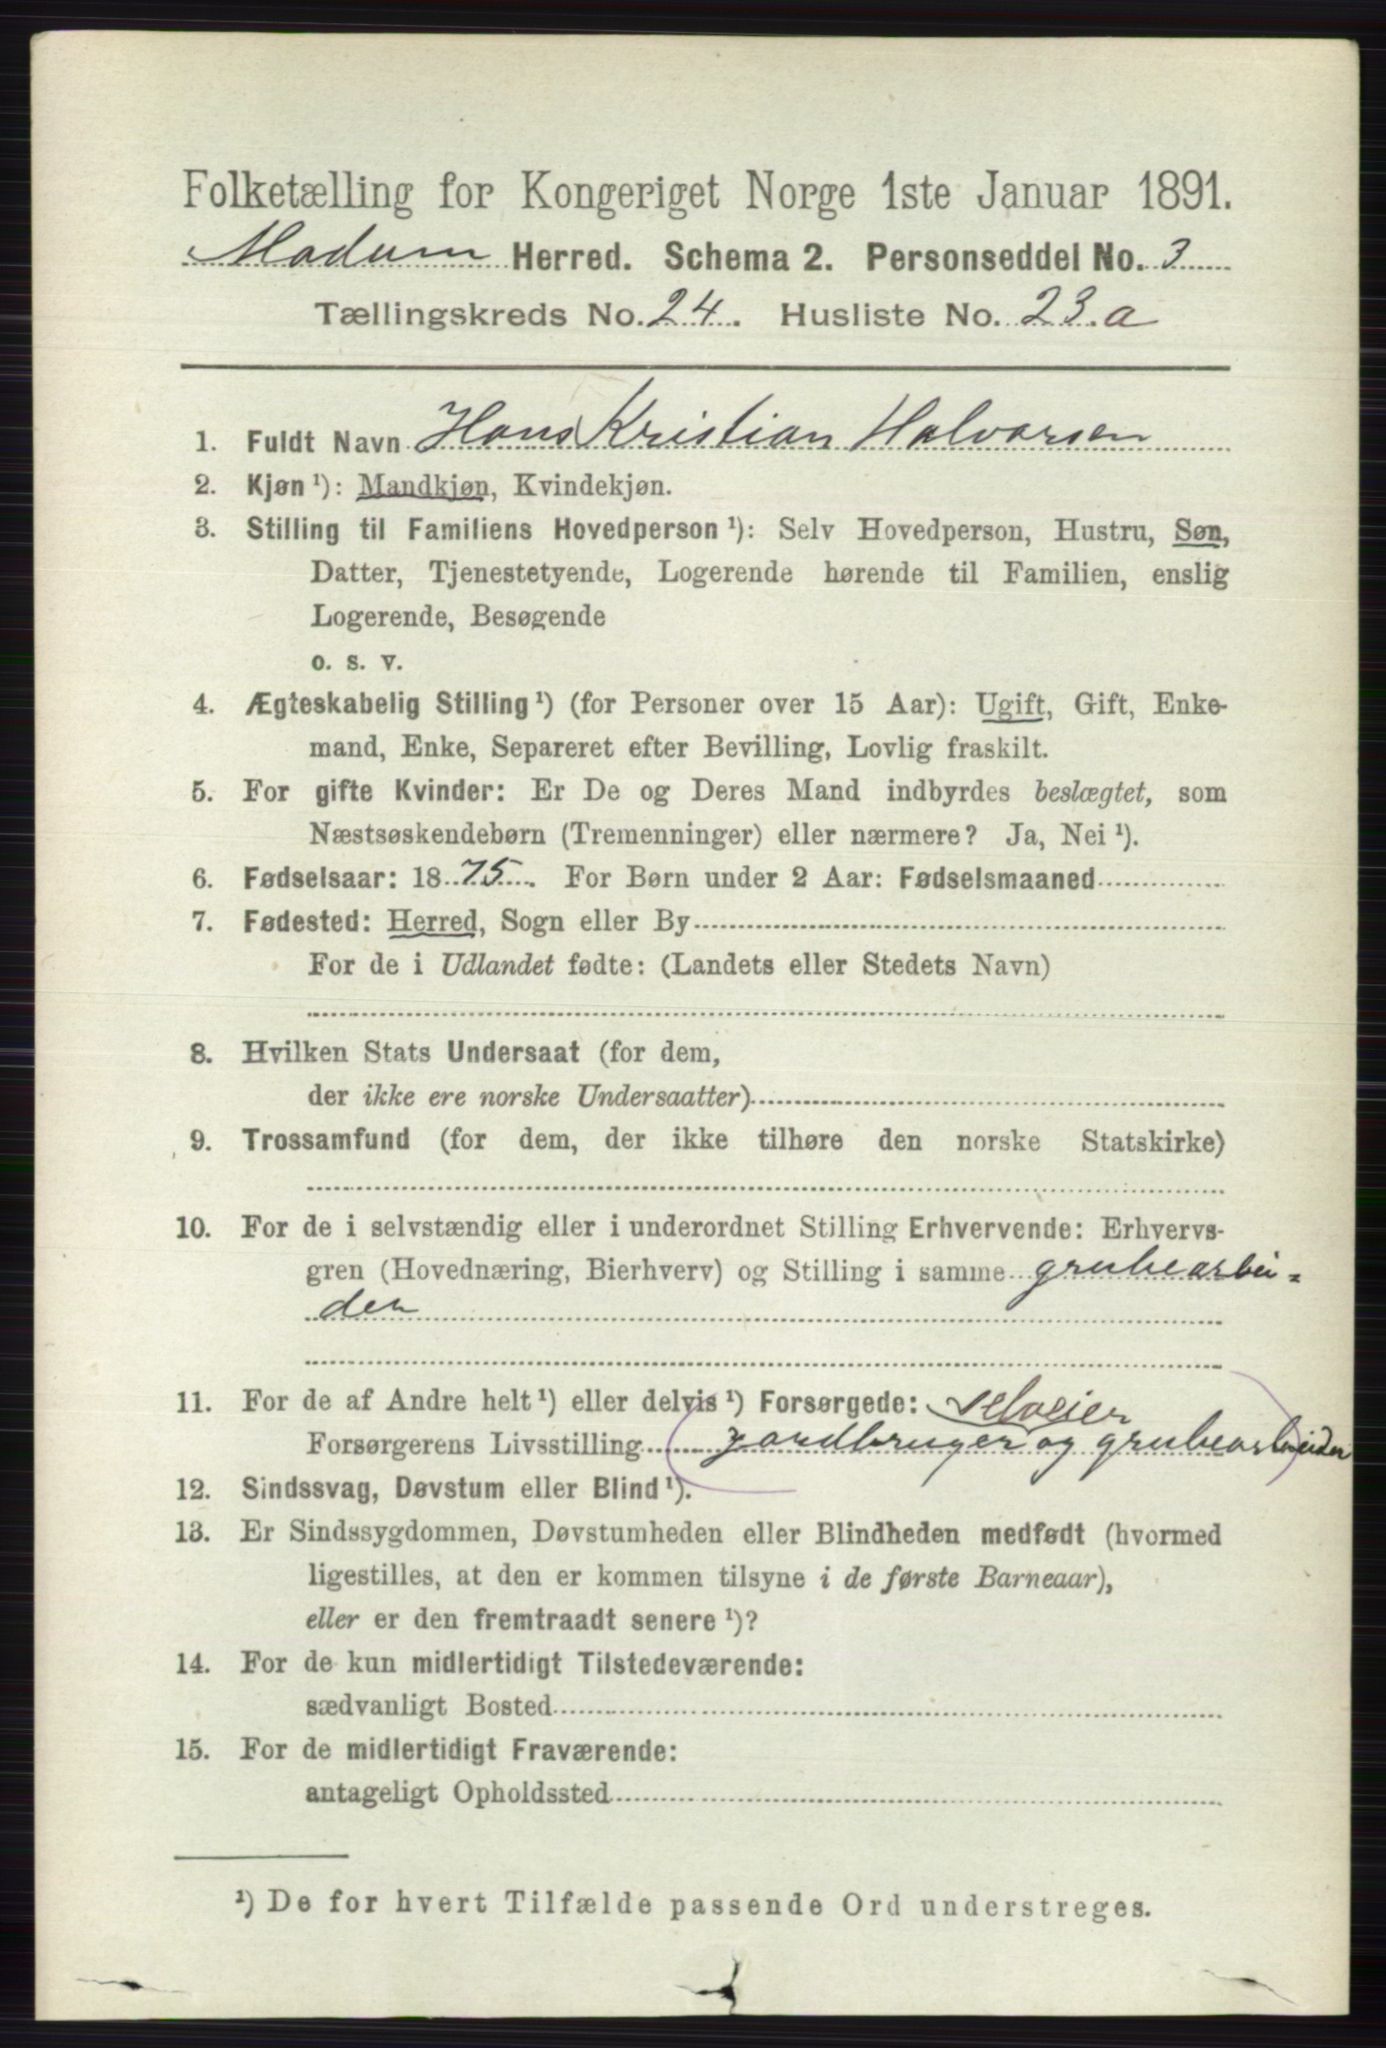 Folketælling for Kongeriget Norge 1ste Januar 1891.
Modum Herred. Schema 2. Personseddel No. 3
Tællingskreds No. 24. Husliste No. 23.a
1. Fuldt Navn Hans Kristian Halvorsen
2. Kjøn ¹): Mandkjøn, Kvindekjøn.
3. Stilling til Familiens Hovedperson ¹): Selv Hovedperson, Hustru, Søn,
Datter, Tjenestetyende, Logerende hørende til Familien, enslig
Logerende, Besøgende
o. s. v.
4. Ægteskabelig Stilling ¹) (for Personer over 15 Aar): Ugift, Gift, Enke-
mand, Enke, Separeret efter Bevilling, Lovlig fraskilt.
5. For gifte Kvinder: Er De og Deres Mand indbyrdes beslægtet, som
Næstsøskendebørn (Tremenninger) eller nærmere? Ja, Nei ¹).
6. Fødselsaar: 1875. For Børn under 2 Aar: Fødselsmaaned
7. Fødested: Herred, Sogn eller By
For de i Udlandet fødte: (Landets eller Stedets Navn)
8. Hvilken Stats Undersaat (for dem,
der ikke ere norske Undersaatter)
9. Trossamfund (for dem, der ikke tilhøre den norske Statskirke)
10. For de i selvstændig eller i underordnet Stilling Erhvervende: Erhvervs-
gren (Hovednæring, Bierhverv) og Stilling i samme grubearbei=
der
11. For de af Andre helt ¹) eller delvis ¹) Forsørgede: selveier
Forsørgerens Livsstilling jordbruger og grubearbeider
12. Sindssvag, Døvstum eller Blind ¹).
13. Er Sindssygdommen, Døvstumheden eller Blindheden medfødt (hvormed
ligestilles, at den er kommen tilsyne i de første Barneaar),
eller er den fremtraadt senere ¹)?
14. For de kun midlertidigt Tilstedeværende:
sædvanligt Bosted
15. For de midlertidigt Fraværende:
antageligt Opholdssted
¹) De for hvert Tilfælde passende Ord understreges.